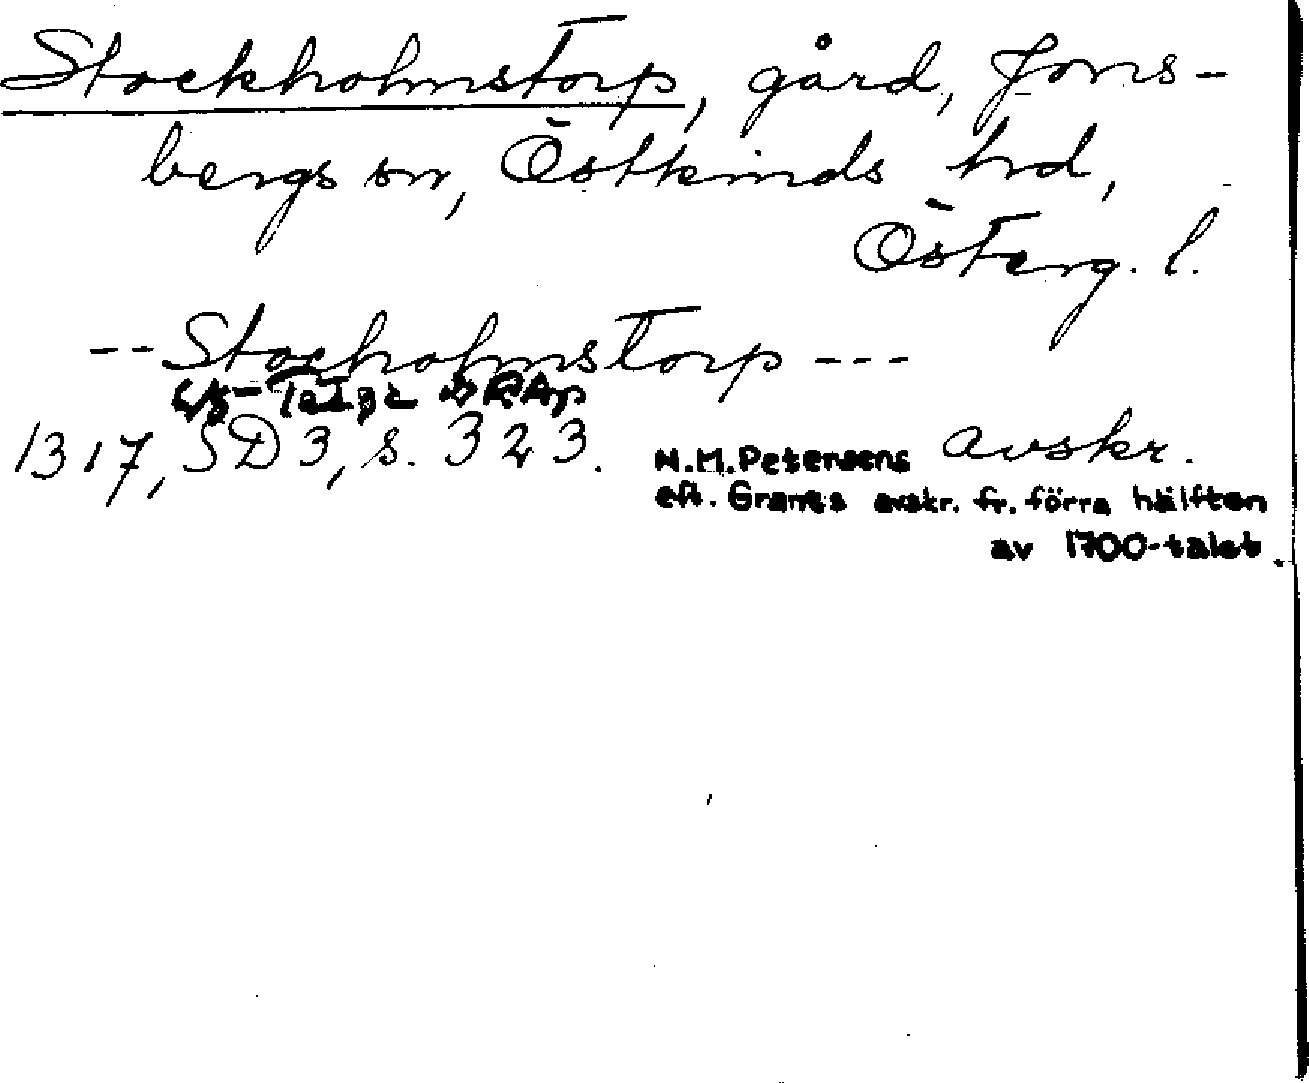 Stockholmstorp, gård, Jons-
bergs sn, Östkinds hd,
Österg. l.
-- Stocholmstorp ---
1317, SD 3, s. 323. N.M. Petersens avskr.
eft. Grams avskr. fr. förra hälften
av 1700-talet.